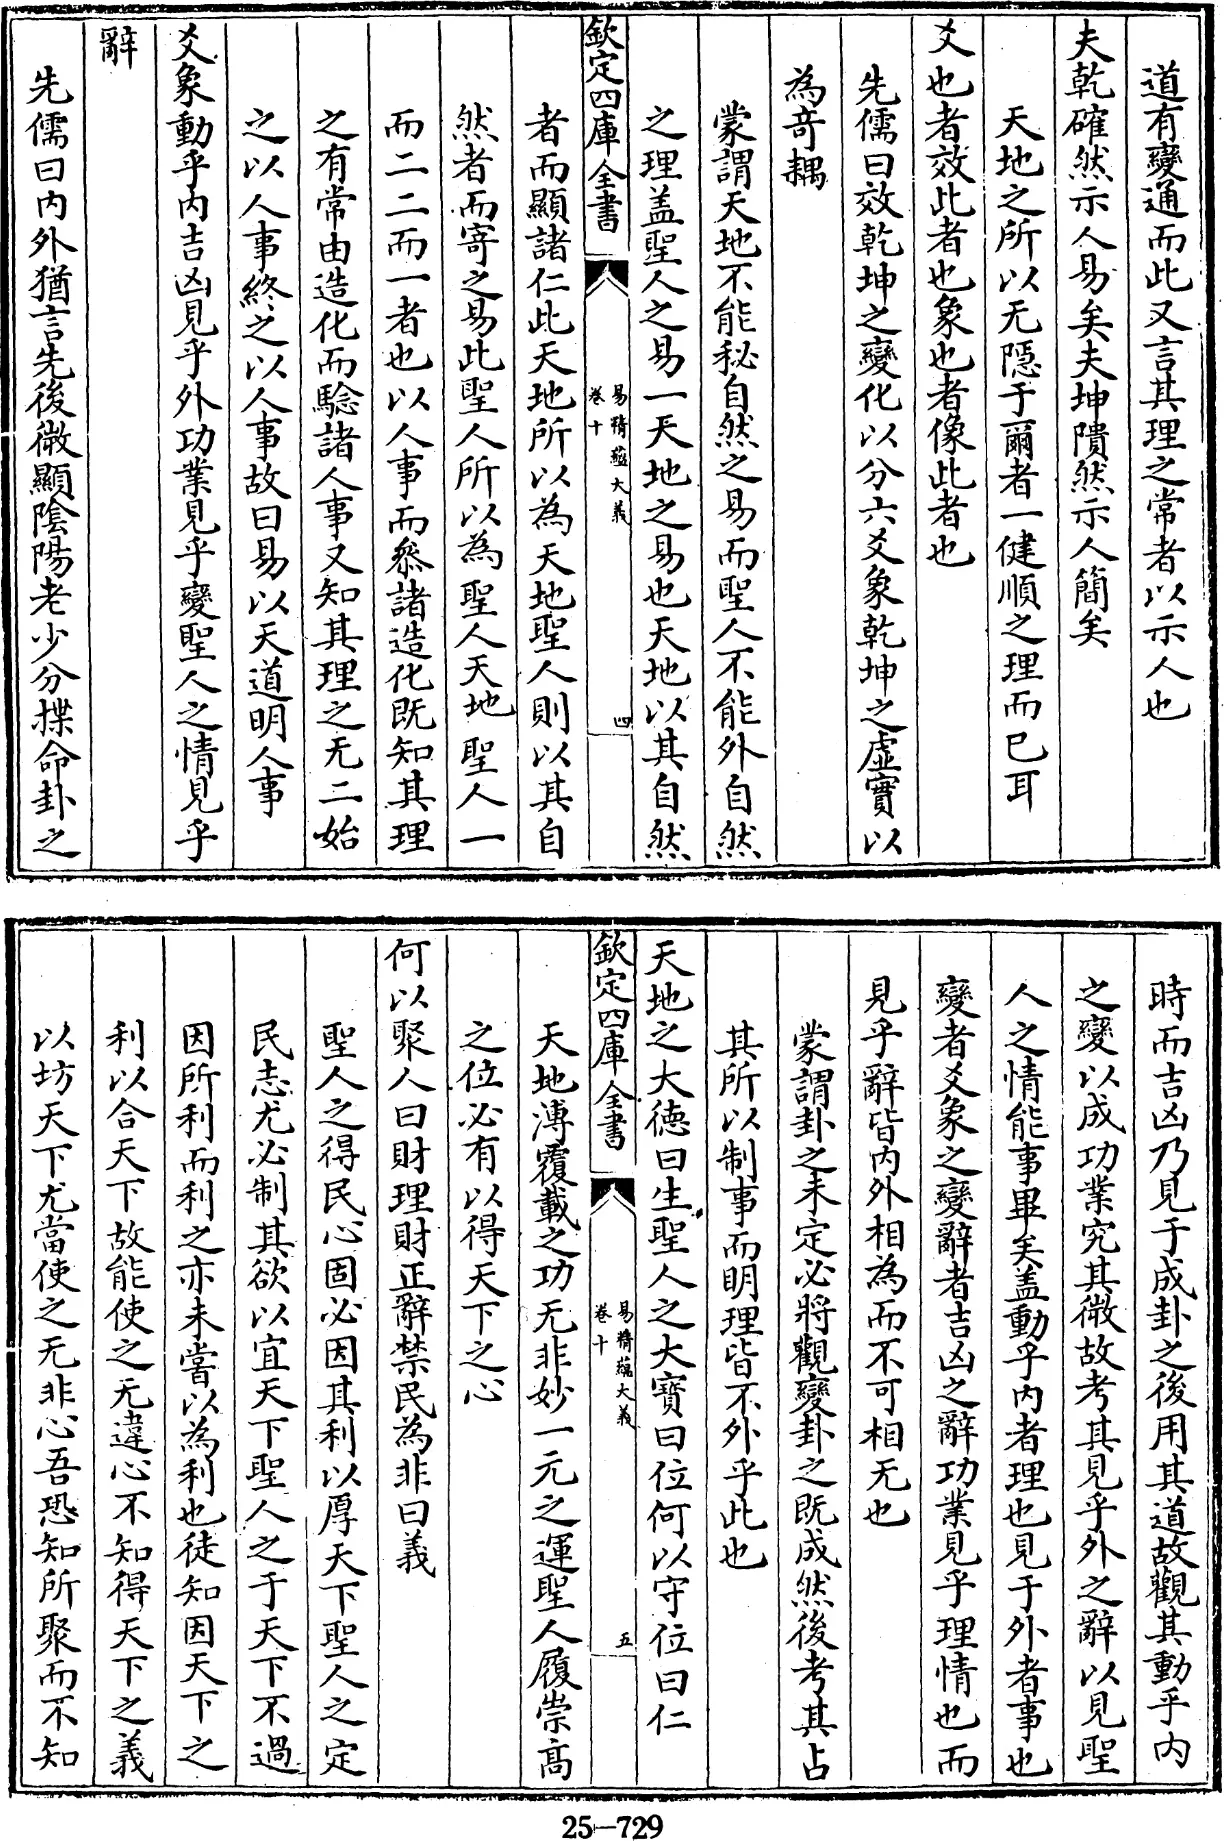 道有變通而此又言其理之常者以示人也
夫乾確然示人易矣夫坤隤然示人簡矣
天地之所以无隱于爾者一健順之理而已耳
爻也者效此者也象也者像此者也
先儒曰效乾坤之變化以分六爻象乾坤之虛實以
為奇耦
蒙謂天地不能秘自然之易而聖人不能外自然
之理盖聖人之易一天地之易也天地以其自然
欽定四庫全書
易精蘊大義
卷十
四
者而顯諸仁此天地所以為天地聖人則以其自
然者而寄之易此聖人所以為聖人天地聖人一
而二二而一者也以人事而叅諸造化既知其理
之有常由造化而騐諸人事又知其理之无二始
之以人事終之以人事故曰易以天道明人事
爻象動乎内吉凶見乎外功業見乎變聖人之情見乎
辭
先儒曰内外猶言先後微顯陰陽老少分揲命卦之
時而吉凶乃見于成卦之後用其道故觀其動乎内
之變以成功業究其微故考其見乎外之辭以見聖
人之情能事畢矣盖動乎内者理也見于外者事也
變者爻象之變辭者吉凶之辭功業見乎理情也而
見乎辭皆内外相為而不可相无也
蒙謂卦之未定必將觀變卦之既成然後考其占
其所以制事而明理皆不外乎此也
天地之大德曰生聖人之大寶曰位何以守位曰仁
欽定四庫全書
易精蘊大義
卷十
五
天地溥覆載之功无非妙一元之運聖人履崇髙
之位必有以得天下之心
何以聚人曰財理財正辭禁民為非曰義
聖人之得民心固必因其利以厚天下聖人之定
民志尤必制其欲以宜天下聖人之于天下不過
因所利而利之亦未嘗以為利也徒知因天下之
利以合天下故能使之无違心不知得天下之義
以坊天下尤當使之无非心吾恐知所聚而不知
25—729